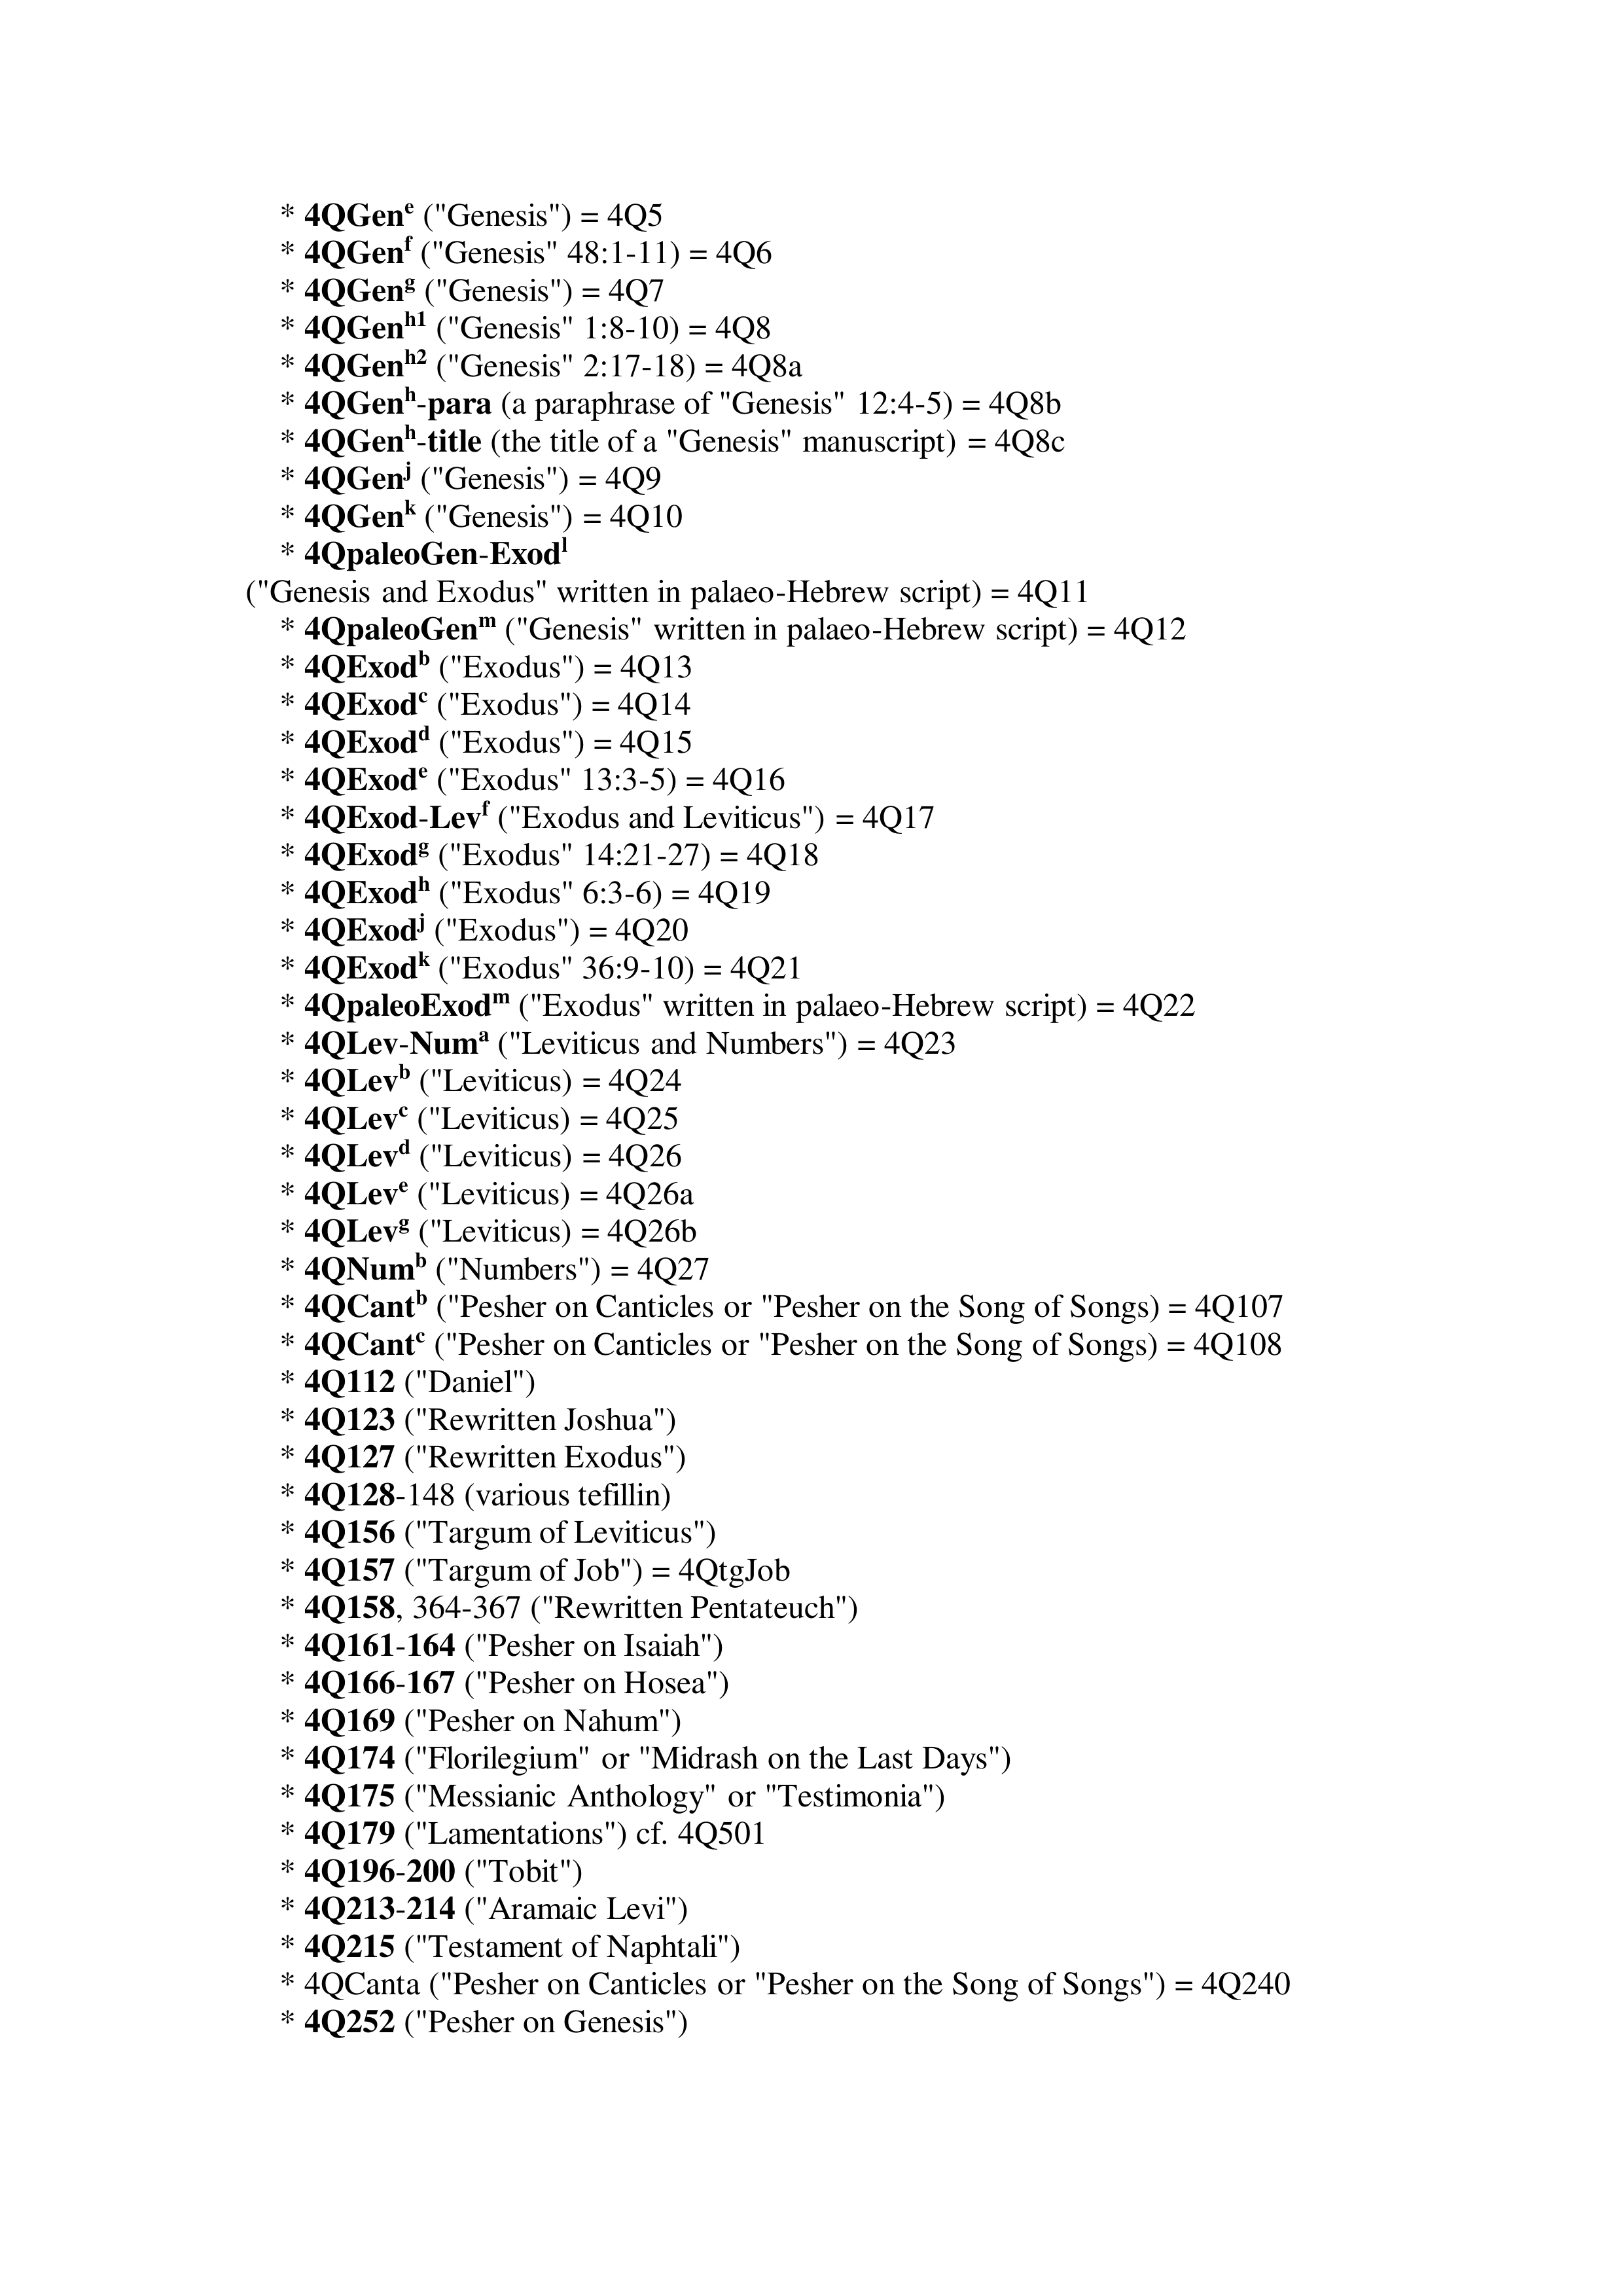 * 4QGenᵉ ("Genesis") = 4Q5
* 4QGenᶠ ("Genesis" 48:1-11) = 4Q6
* 4QGenᵍ ("Genesis") = 4Q7
* 4QGenʰ¹ ("Genesis" 1:8-10) = 4Q8
* 4QGenʰ² ("Genesis" 2:17-18) = 4Q8a
* 4QGenʰ-para (a paraphrase of "Genesis" 12:4-5) = 4Q8b
* 4QGenʰ-title (the title of a "Genesis" manuscript) = 4Q8c
* 4QGenʲ ("Genesis") = 4Q9
* 4QGenᵏ ("Genesis") = 4Q10
* 4QpaleoGen-Exodˡ
("Genesis and Exodus" written in palaeo-Hebrew script) = 4Q11
* 4QpaleoGenᵐ ("Genesis" written in palaeo-Hebrew script) = 4Q12
* 4QExodᵇ ("Exodus") = 4Q13
* 4QExodᶜ ("Exodus") = 4Q14
* 4QExodᵈ ("Exodus") = 4Q15
* 4QExodᵉ ("Exodus" 13:3-5) = 4Q16
* 4QExod-Levᶠ ("Exodus and Leviticus") = 4Q17
* 4QExodᵍ ("Exodus" 14:21-27) = 4Q18
* 4QExodʰ ("Exodus" 6:3-6) = 4Q19
* 4QExodʲ ("Exodus") = 4Q20
* 4QExodᵏ ("Exodus" 36:9-10) = 4Q21
* 4QpaleoExodᵐ ("Exodus" written in palaeo-Hebrew script) = 4Q22
* 4QLev-Numᵃ ("Leviticus and Numbers") = 4Q23
* 4QLevᵇ ("Leviticus) = 4Q24
* 4QLevᶜ ("Leviticus) = 4Q25
* 4QLevᵈ ("Leviticus) = 4Q26
* 4QLevᵉ ("Leviticus) = 4Q26a
* 4QLevᵍ ("Leviticus) = 4Q26b
* 4QNumᵇ ("Numbers") = 4Q27
* 4QCantᵇ ("Pesher on Canticles or "Pesher on the Song of Songs) = 4Q107
* 4QCantᶜ ("Pesher on Canticles or "Pesher on the Song of Songs) = 4Q108
* 4Q112 ("Daniel")
* 4Q123 ("Rewritten Joshua")
* 4Q127 ("Rewritten Exodus")
* 4Q128-148 (various tefillin)
* 4Q156 ("Targum of Leviticus")
* 4Q157 ("Targum of Job") = 4QtgJob
* 4Q158, 364-367 ("Rewritten Pentateuch")
* 4Q161-164 ("Pesher on Isaiah")
* 4Q166-167 ("Pesher on Hosea")
* 4Q169 ("Pesher on Nahum")
* 4Q174 ("Florilegium" or "Midrash on the Last Days")
* 4Q175 ("Messianic Anthology" or "Testimonia")
* 4Q179 ("Lamentations") cf. 4Q501
* 4Q196-200 ("Tobit")
* 4Q213-214 ("Aramaic Levi")
* 4Q215 ("Testament of Naphtali")
* 4QCanta ("Pesher on Canticles or "Pesher on the Song of Songs") = 4Q240
* 4Q252 ("Pesher on Genesis")